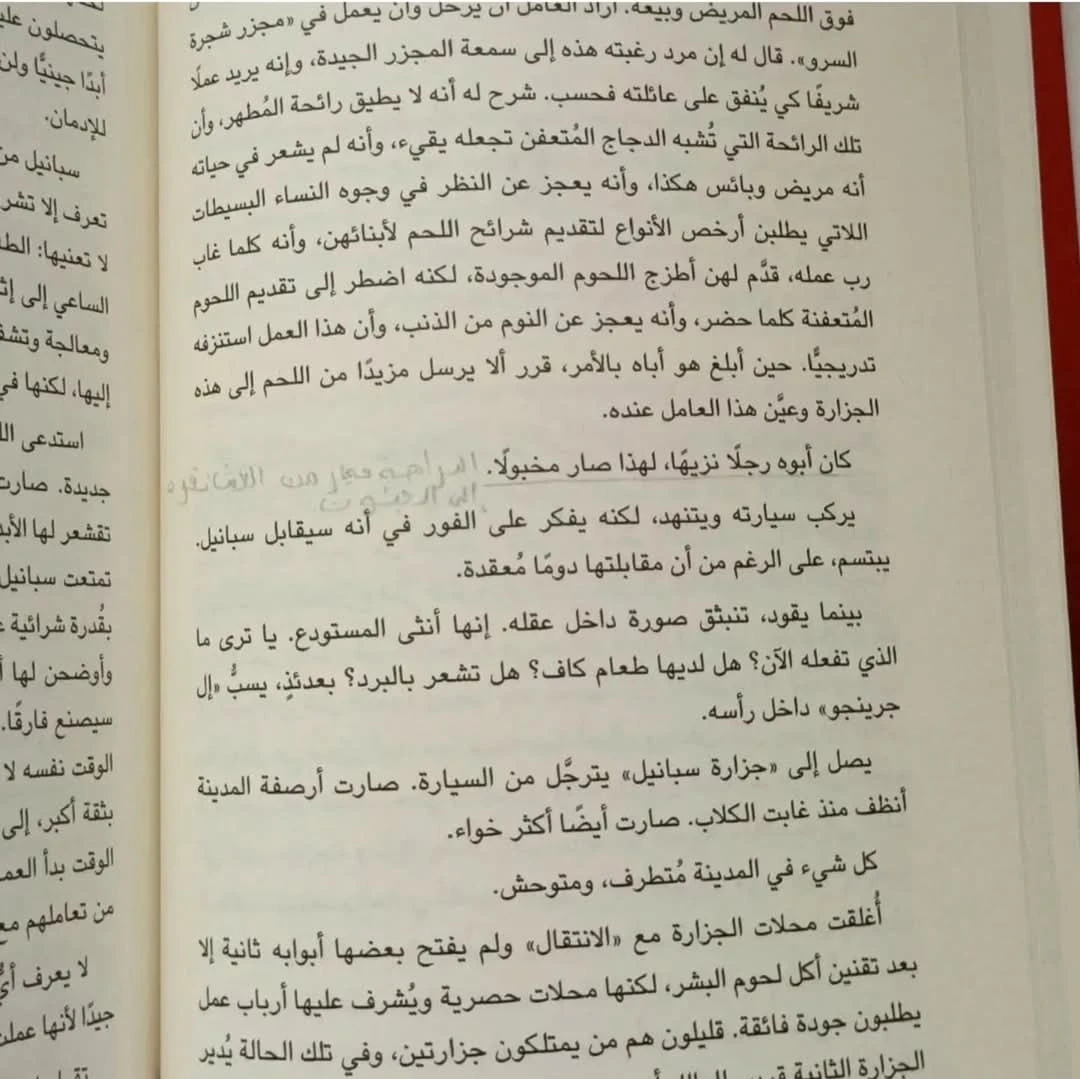 فوق اللحم المريض وبيعه. أراد العامل أن يرحل وأن يعمل في «مجزر شجرة
السرو». قال له إن مرد رغبته هذه إلى سمعة المجزر الجيدة، وإنه يريد عملًا
شريفًا كي يُنفق على عائلته فحسب. شرح له أنه لا يطيق رائحة المُطهر، وأن
تلك الرائحة التي تُشبه الدجاج المُتعفن تجعله يقيء، وأنه لم يشعر في حياته
أنه مريض وبائس هكذا، وأنه يعجز عن النظر في وجوه النساء البسيطات
اللاتي يطلبن أرخص الأنواع لتقديم شرائح اللحم لأبنائهن، وأنه كلما غاب
رب عمله، قدَّم لهن أطزج اللحوم الموجودة، لكنه اضطر إلى تقديم اللحوم
المُتعفنة كلما حضر، وأنه يعجز عن النوم من الذنب، وأن هذا العمل استنزفه
تدريجيًّا. حين أبلغ هو أباه بالأمر، قرر ألا يرسل مزيدًا من اللحم إلى هذه
الجزارة وعيَّن هذا العامل عنده.
كان أبوه رجلًا نزيهًا، لهذا صار مخبولًا.
يركب سيارته ويتنهد، لكنه يفكر على الفور في أنه سيقابل سبانيل.
يبتسم، على الرغم من أن مقابلتها دومًا مُعقدة.
بينما يقود، تنبثق صورة داخل عقله. إنها أنثى المستودع. يا ترى ما
الذي تفعله الآن؟ هل لديها طعام كاف؟ هل تشعر بالبرد؟ بعدئذٍ، يسبُّ «إل
جرينجو» داخل رأسه.
يصل إلى «جزارة سبانيل» يترجَّل من السيارة. صارت أرصفة المدينة
أنظف منذ غابت الكلاب. صارت أيضًا أكثر خواء.
كل شيء في المدينة مُتطرف، ومتوحش.
أُغلقت محلات الجزارة مع «الانتقال» ولم يفتح بعضها أبوابه ثانية إلا
بعد تقنين أكل لحوم البشر، لكنها محلات حصرية ويُشرف عليها أرباب عمل
يطلبون جودة فائقة. قليلون هم من يمتلكون جزارتين، وفي تلك الحالة يُدير
الجزارة الثانية
يتحصلون
أبدًا جينيًّا ولن
للإدمان.
سبانيل
تعرف إلا
لا تعنيها:
الساعي إلى
ومعالجة
إليها، لكنها في
استدعى
جديدة. صارت
تقشعر لها
تمتعت سبانيل
بقُدرة شرائية
وأوضحن لها
سيصنع فارقًا.
الوقت نفسه لا
بثقة أكبر، إلى
الوقت بدأ
من تعاملهم
لا يعرف
جيدًا لأنها